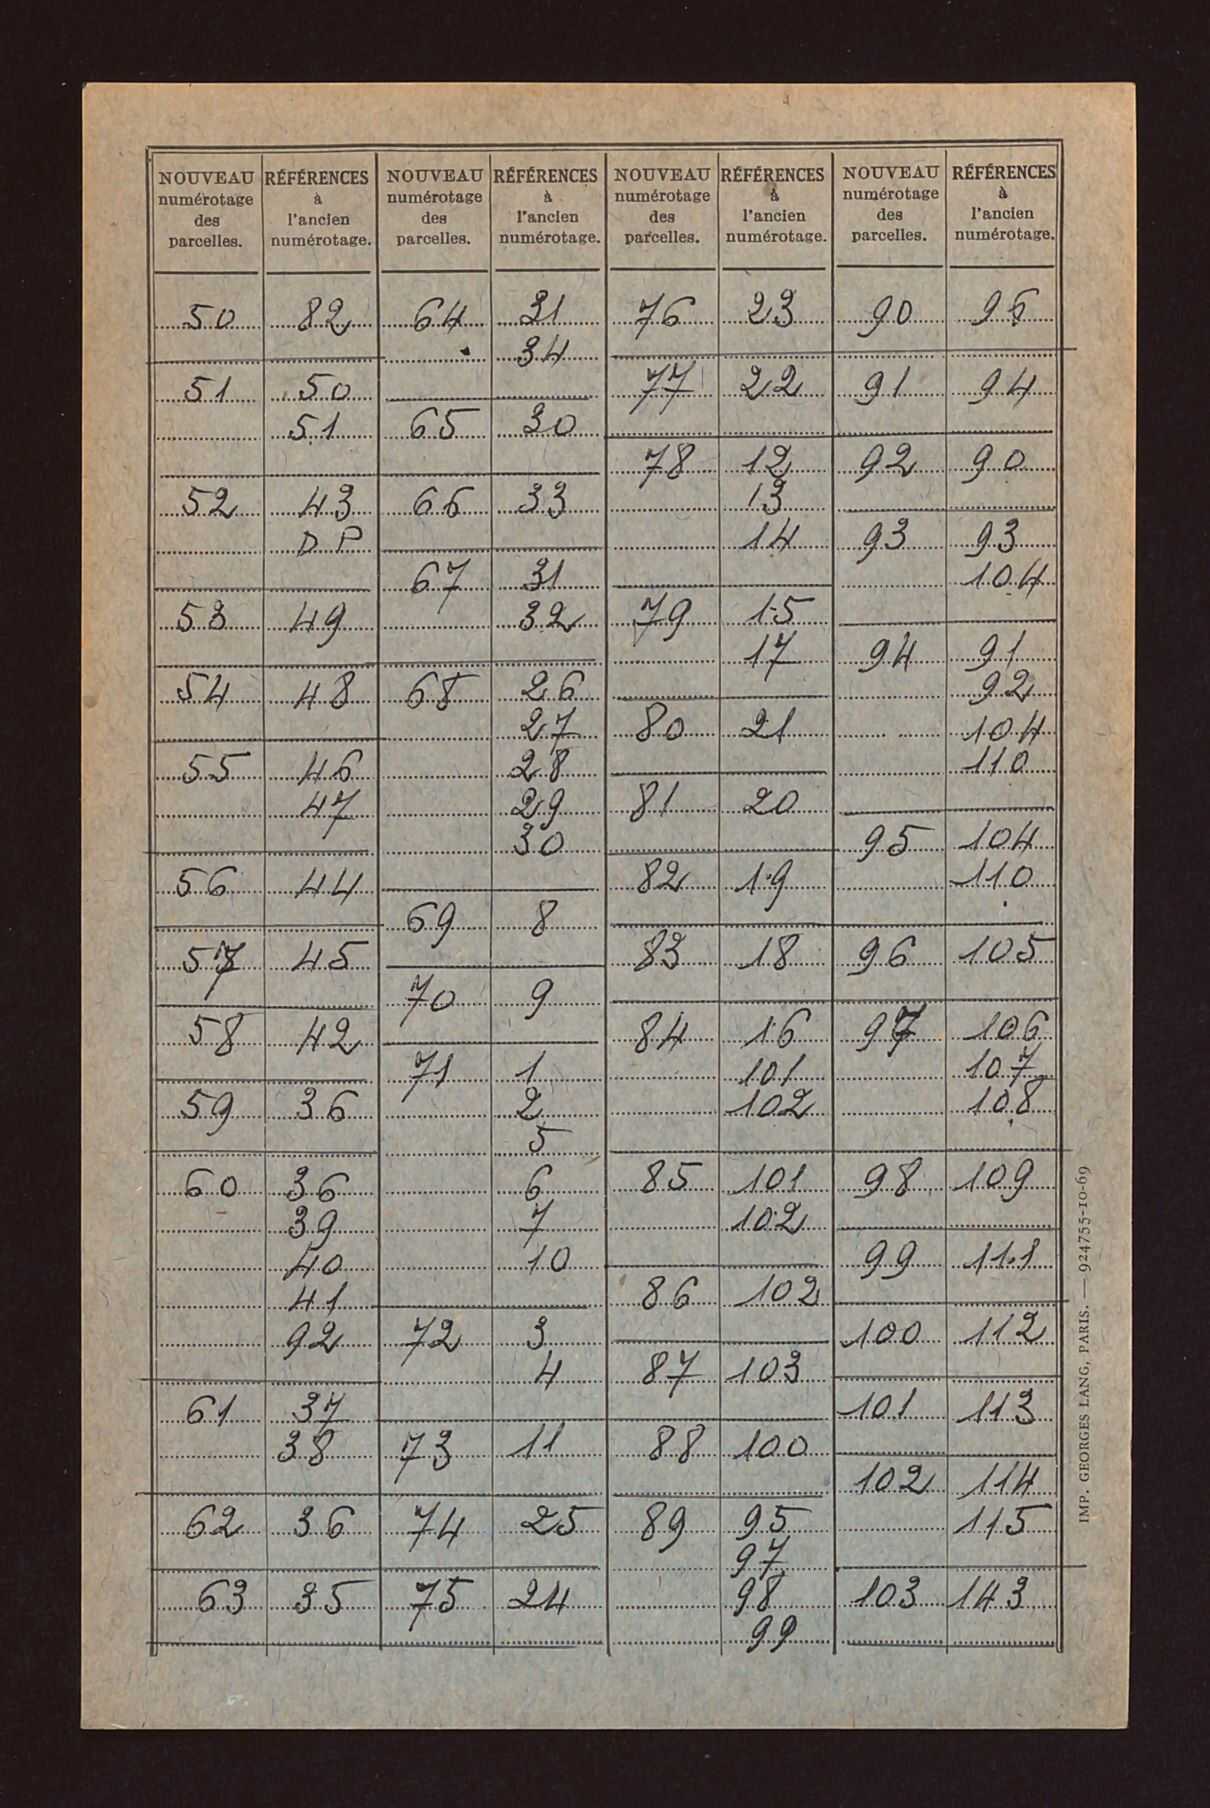 NOUVEAU numérotage des parcelles.
RÉFÉRENCES à l'ancien numérotage.
50 82
51 50
51
52 43
D P
53 49
54 48
55 46
47
56 44
57 45
58 42
59 36
60 36
39
40
41
92
61 37
38
62 36
63 35
NOUVEAU numérotage des parcelles.
RÉFÉRENCES à l'ancien numérotage.
64 31
34
65 30
66 33
67 31
32
68 26
27
28
29
30
69 8
70 9
71 1
2
5
6
7
10
72 3
4
73 11
74 25
75 24
NOUVEAU numérotage des parcelles.
RÉFÉRENCES à l'ancien numérotage.
76 23
77 22
78 12
13
14
79 15
17
80 21
81 20
82 19
83 18
84 16
101
102
85 101
102
86 102
87 103
88 100
89 95
97
98
99
NOUVEAU numérotage des parcelles.
RÉFÉRENCES à l'ancien numérotage.
90 96
91 94
92 90
93 93
104
94 91
92
104
110
95 104
110
96 105
97 106
107
108
98 109
99 111
100 112
101 113
102 114
115
103 143
IMP. GEORGES LANG, PARIS. — 924755-10-69